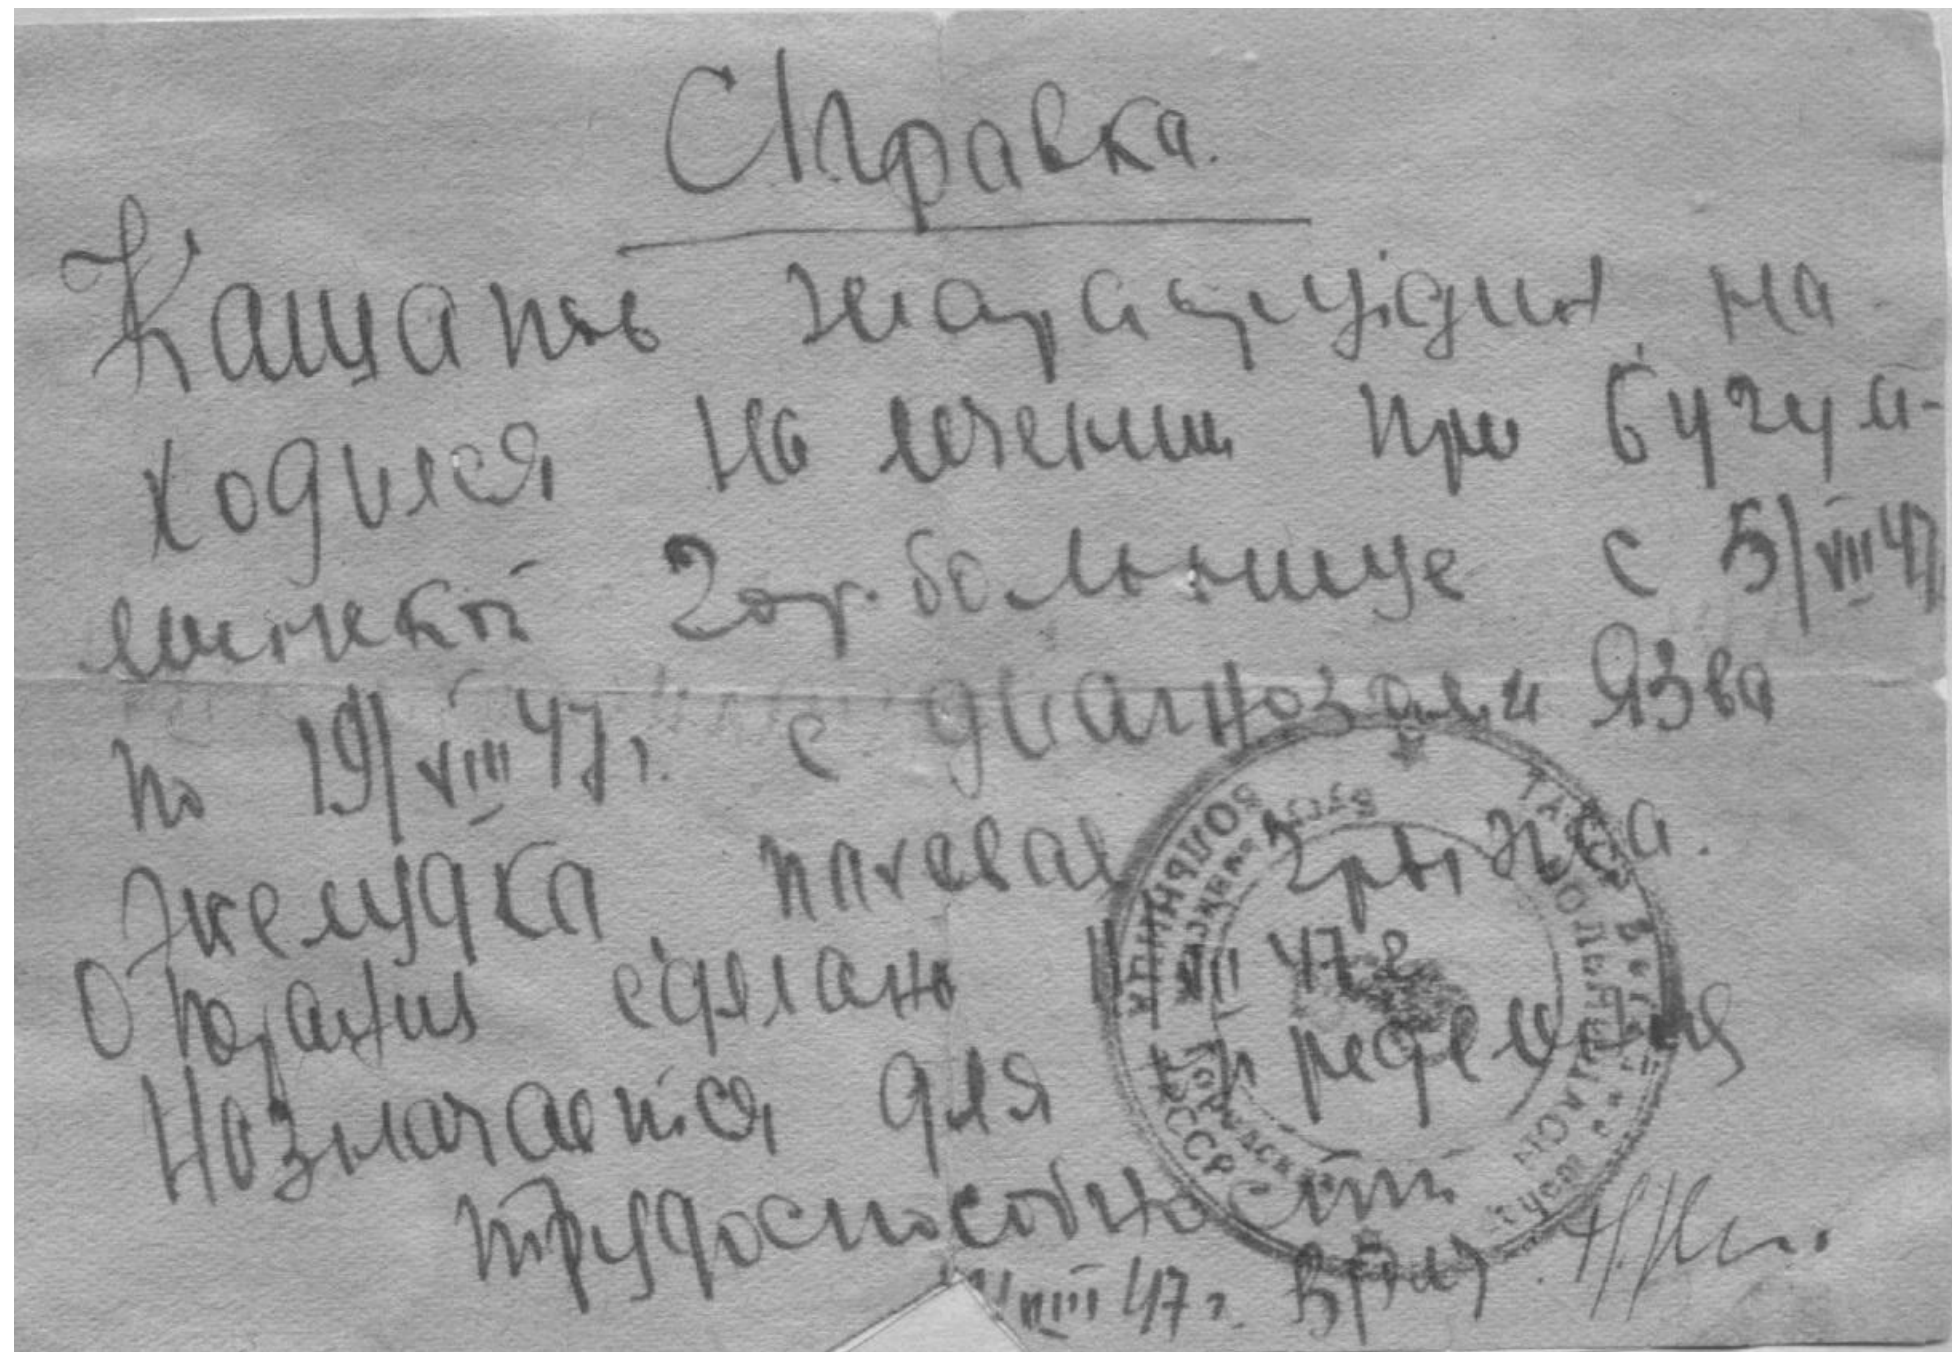 Справка.
Кашапов на
ходился на лечении при Бугуль-
минской гор. больнице с 5/VIII 47
по 19/VIII 47 г. с диагнозом Язва
желудка паховая грыжа.
Операция сделано VIII 47 г
Назначается для определения
трудоспособности
VIII 47 г. Врач
БОЛЬНИЦА
ТАССР